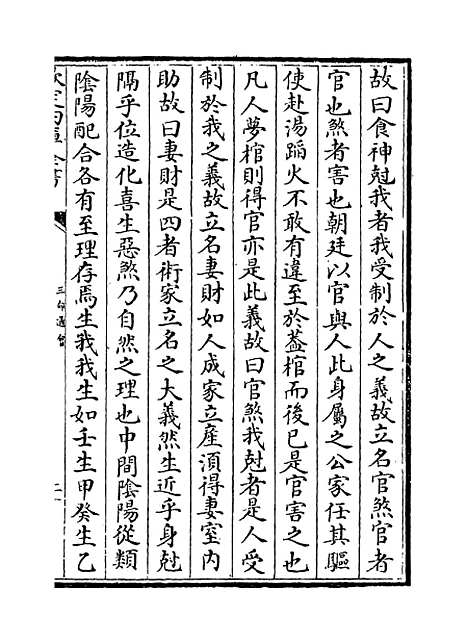 故曰食神尅我者我受制於人之義故立名官煞官者
官也煞者害也朝廷以官與人此身屬之公家任其驅
使赴湯蹈火不敢有違至於蓋棺而後已是官害之也
凡人夢棺則得官亦是此義故曰官煞我尅者是人受
制於我之義故立名妻財如人成家立産湏得妻室内
助故曰妻財是四者術家立名之大義然生近乎身尅
隔乎位造化喜生惡煞乃自然之理也中間隂陽從類
隂陽配合各有至理存焉生我我生如壬生甲癸生乙
欽定四庫全書
三命通㑹